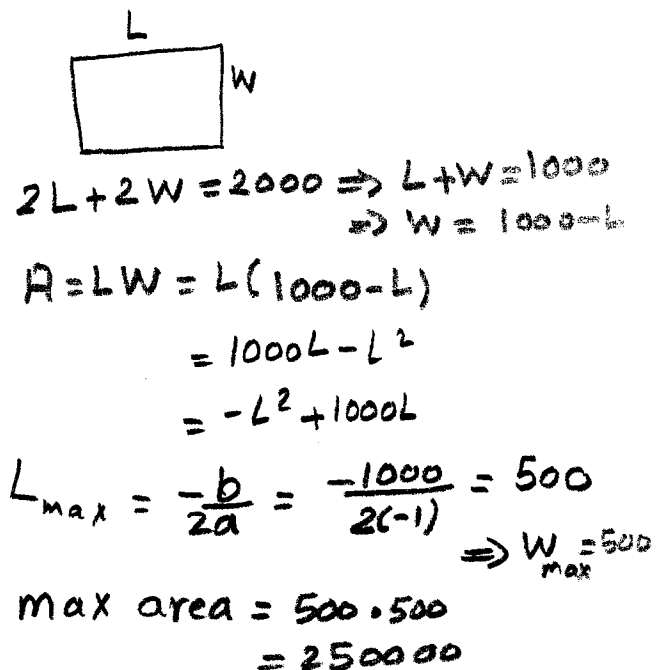 L
W
2L+2W=2000 ⇒ L+W=1000
⇒ W = 1000-L
A=LW = L(1000-L)
= 1000L-L²
= -L²+1000L
L max = -b/2a = -1000/2(-1) = 500
⇒ W max =500
max area = 500•500
= 250000